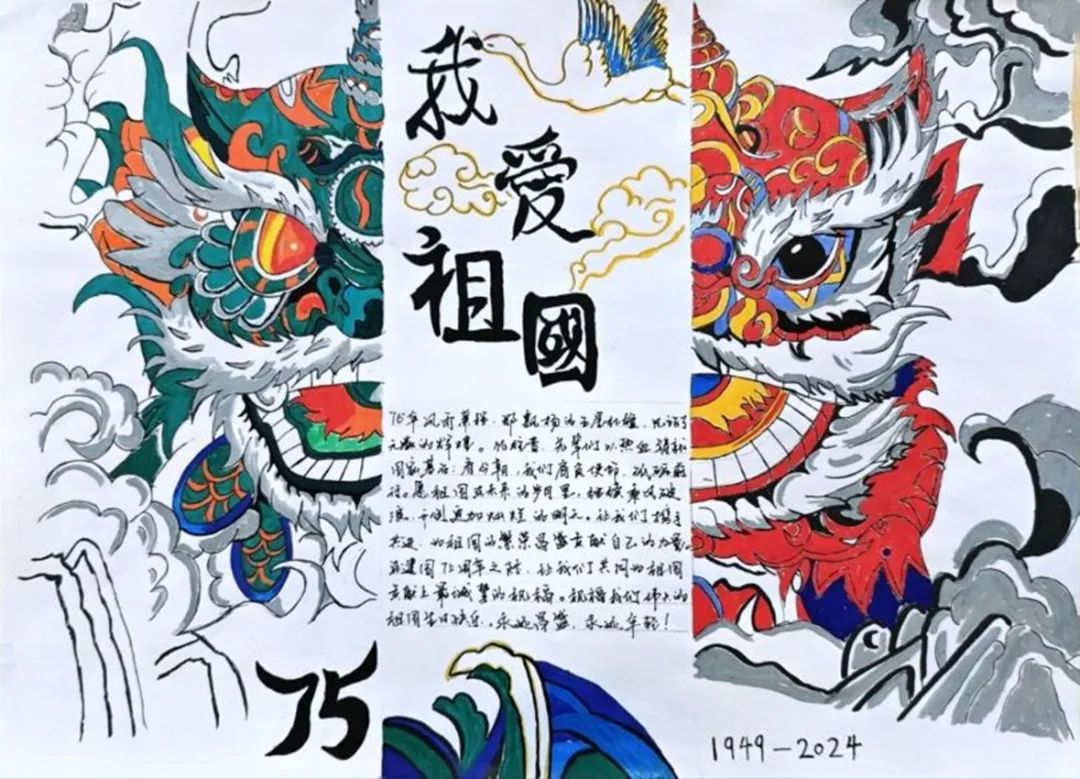 我
愛
祖
國
75年风雨兼程,那飘扬的五星红旗,见证了
无数的辉煌。忆往昔,先辈们以热血铸就
国家基石;看今朝,我们肩负使命,砥砺前
行。愿祖国在未来的岁月里,继续乘风破
浪,开创更加灿烂的明天。让我们携手
共进,为祖国的繁荣昌盛贡献自己的力量。
在建国75周年之际,让我们共同为祖国
贡献上最诚挚的祝福。祝福我们伟大的
祖国生日快乐,永远昌盛,永远年轻!
75
1949-2024